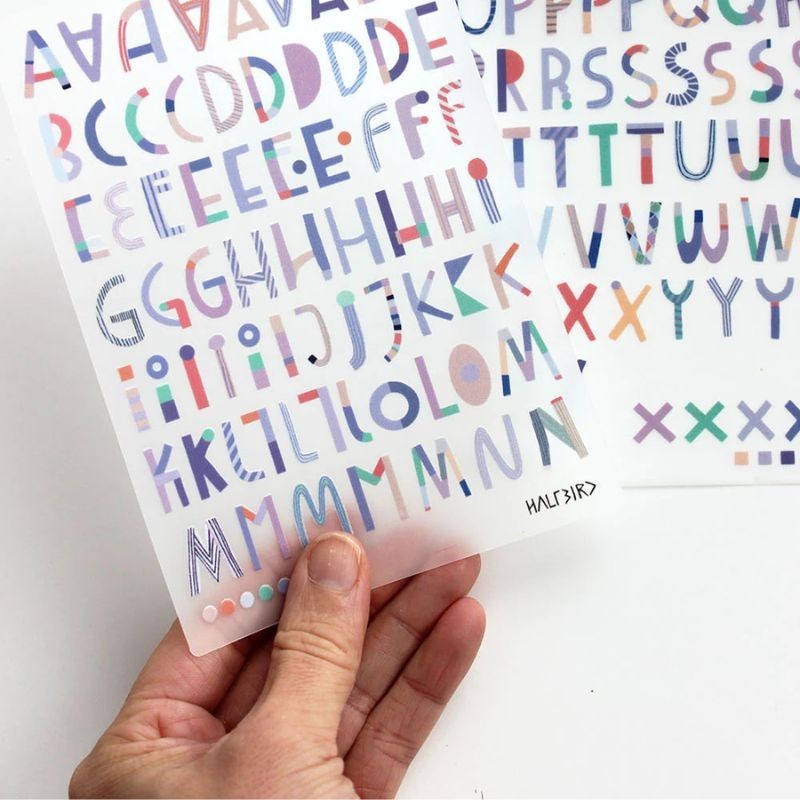 AAAAAAA
BCCCDDDDDE
EEEEEEEFFF
GGGHHHHHHi
iiiiiiJjJKKK
KKLLLLOLOM
MMMMMNN
HALFBIRD
OPPPPQQR
RRRSSSSS
TTTTUUU
VVVWW
XXYYY
XXXX